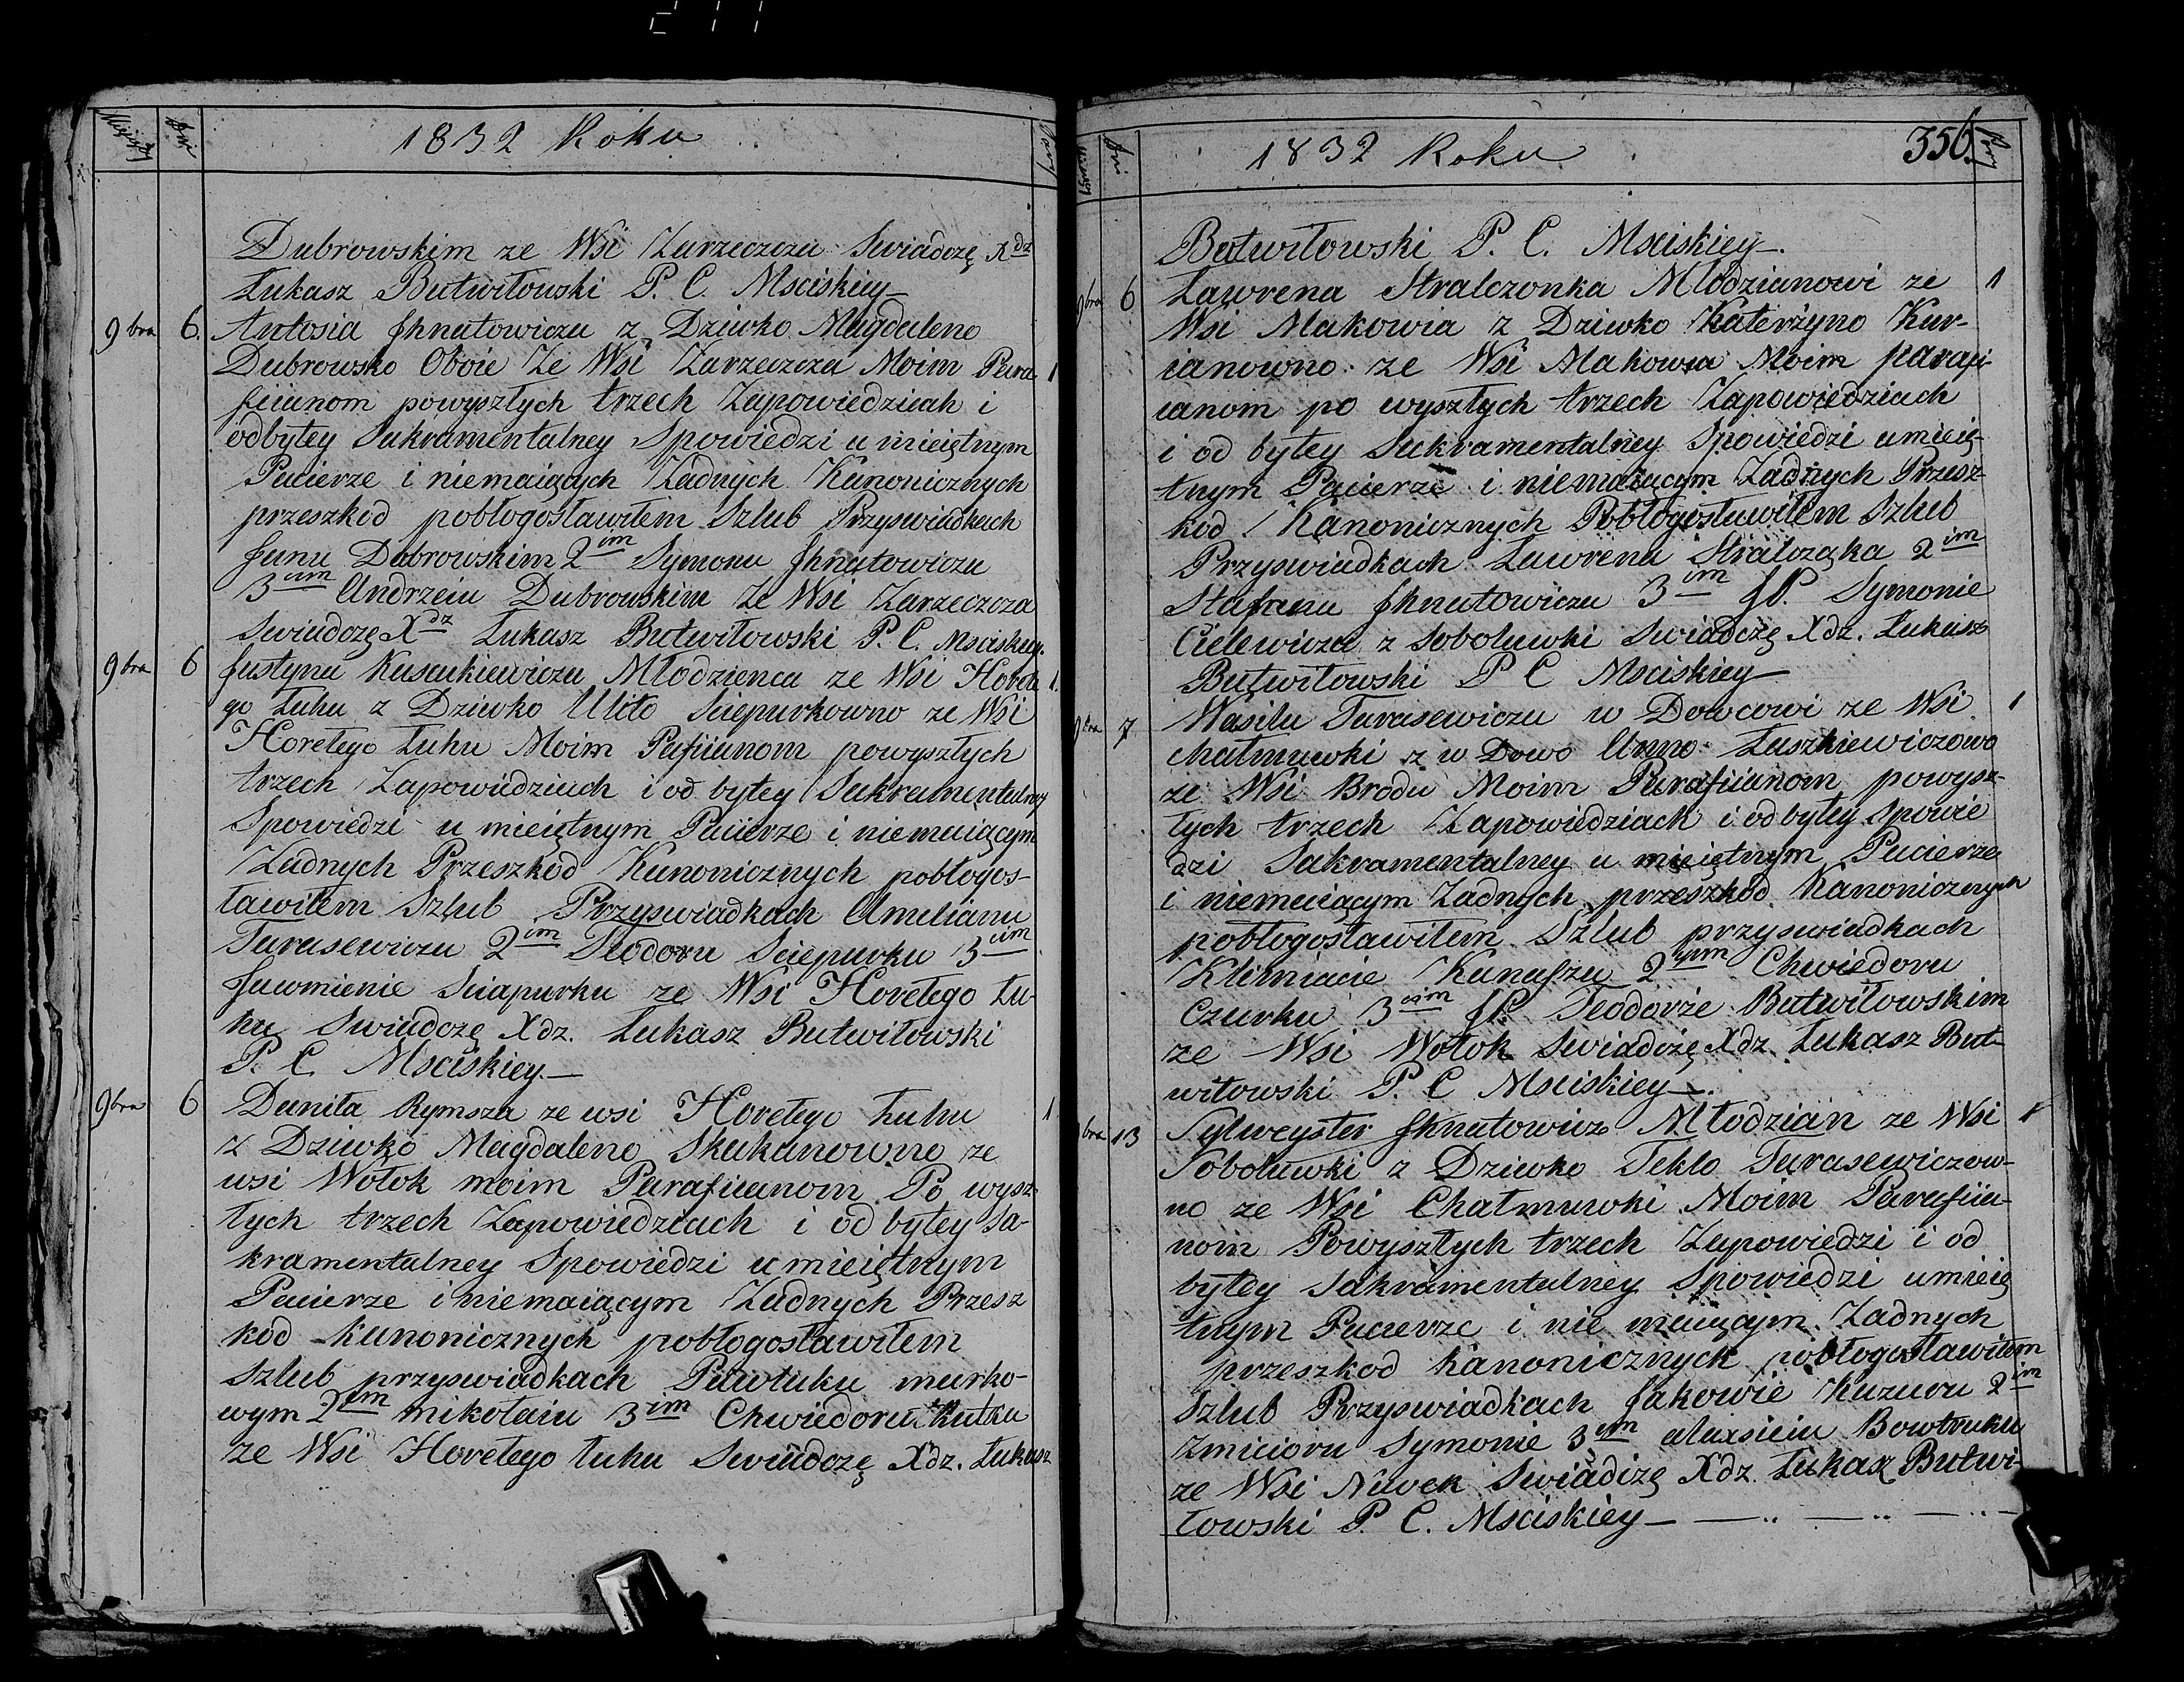 1832 Roku
Dubrowskim ze Wsi Zarzeczcza Swiadczę Xdz
Łukasz Butwiłowski P. C. Msciskiey
9bra 6. Antosia Jhnatowicza z Dziewko Magdaleno
Dubrowsko Oboie Ze Wsi Zarzeczcza Moim Para 1
fiianom powyszłych trzech Zapowiedziach i
odbytey Sakramentalney Spowiedzi umieiętnym
Pacierze i niemaiących Zadnych Kanonicznych
przeszkod pobłogosławiłem Szlub Przyswiadkach
Janu Dubrowskim 2im Symonu Jhnatowiczu
3cim Andrzeiu Dubrowskim Ze Wsi Zarzeczcza
Swiadczę Xdz Łukasz Butwiłowski P. C. Msciskiey.
9bra 6 Justynu Młodzienca ze Wsi Horełe 1.
go Łuhu z Dziewko Ulito Sciepurkowno ze Wsi
Horełego Łuhu Moim Pafiianom powyszłych
trzech Zapowiedziach i od bytey Sakramentalney
Spowiedzi u mieiętnym Pacierze i niemaiącym
Zadnych Przeszkod Kanonicznych pobłogos-
ławiłem Szlub Przyswiadkach Amilianu
Tarasewiczu 2im Teodoru Sciepurku 3cim
Jawmienie Sciapurku ze Wsi Horełego Łu-
hu Swiadczę Xdz. Łukasz Butwiłowski
P. C. Msciskiey.—
9bra 6 Daniła Rymsza ze wsi Horełego Łuhu 1
z Dziewko Magdaleno Skakanowno ze
wsi Wołok moim Parafiianom Po wysz
łych trzech Zapowiedziach i od bytey Sa-
kramentalney Spowiedzi umieiętnym
Pacierze i niemaiącym Zadnych Przesz
kod kanonicznych pobłogosławiłem
Szlub przyswiadkach Pawłuku murko-
wym 2im mikołaiu 3im Chwiedoru Kutku
ze Wsi Horełego Łuhu Swiadczę Xdz. Łukasz
1832 Roku 356.
Butwiłowski P. C. Msciskiey—.
9bra 6 Ławrena Stralczonka Młodzianowi ze 1
Wsi Makowia z Dziewko Katerżyno Kur-
ianowno ze Wsi Makowia Moim parafi
ianom po wyszłych trzech Zapowiedziach
i od bytey Sakramentalney Spowiedzi umieię-
tnym Pacierze i niemaiącym Zadnych Przesz
kod Kanonicznych Pobłogosławiłem Szlub
Przyswiadkach Ławrenu Stralcząka 2im
Stafanu Jhnatowiczu 3im JP. Symonie
Cielewicza z Soboluwki Swiadczę Xdz. Łukasz
Butwiłowski P C Msciskiey—
9bra 7. Wasilu Tarasewiczu w Dowcowi ze Wsi 1
chałmuwki z w Dowo Anno Łuszkiewiczowo
ze Wsi Brodu Moim Parafiianom powysz-
łych trzech Zapowiedziach i odbytey Spowie
dzi Sakramentalney u mieiętnym Pacierze
i niemaiącym Zadnych przeszkod Kanonicznych
pobłogosławiłem Szlub przyswiadkach
Klimiacie 2im Chwiedoru
Czurku 3cim JP. Teodorze Butwiłowskim
ze Wsi Wołok Swiadczę Xdz. Łukasz But-
wiłowski P. C Msciskiey—.
9bra 13 Sylweyster Jhnatowicz Młodzian ze Wsi 1
Soboluwki z Dziewko Teklo Tarasewiczow-
no ze Wsi Chałmuwki Moim Parafiia-
nom Powyszłych trzech Zapowiedzi i od
bytey Sakramentalney Spowiedzi umieię
tnym Pacierze i nie maiącym Zadnych
przeszkod kanonicznych pobłogosławiłem
Szlub Przyswiadkach Jakowie 2im
Zmicioru Symonie 3im Alaxsieiu Bowtruku
ze Wsi Niwek Swiadczę Xdz. Łukasz Butwi-
łowski P. C. Msciskiey — — .. — .. — .. —